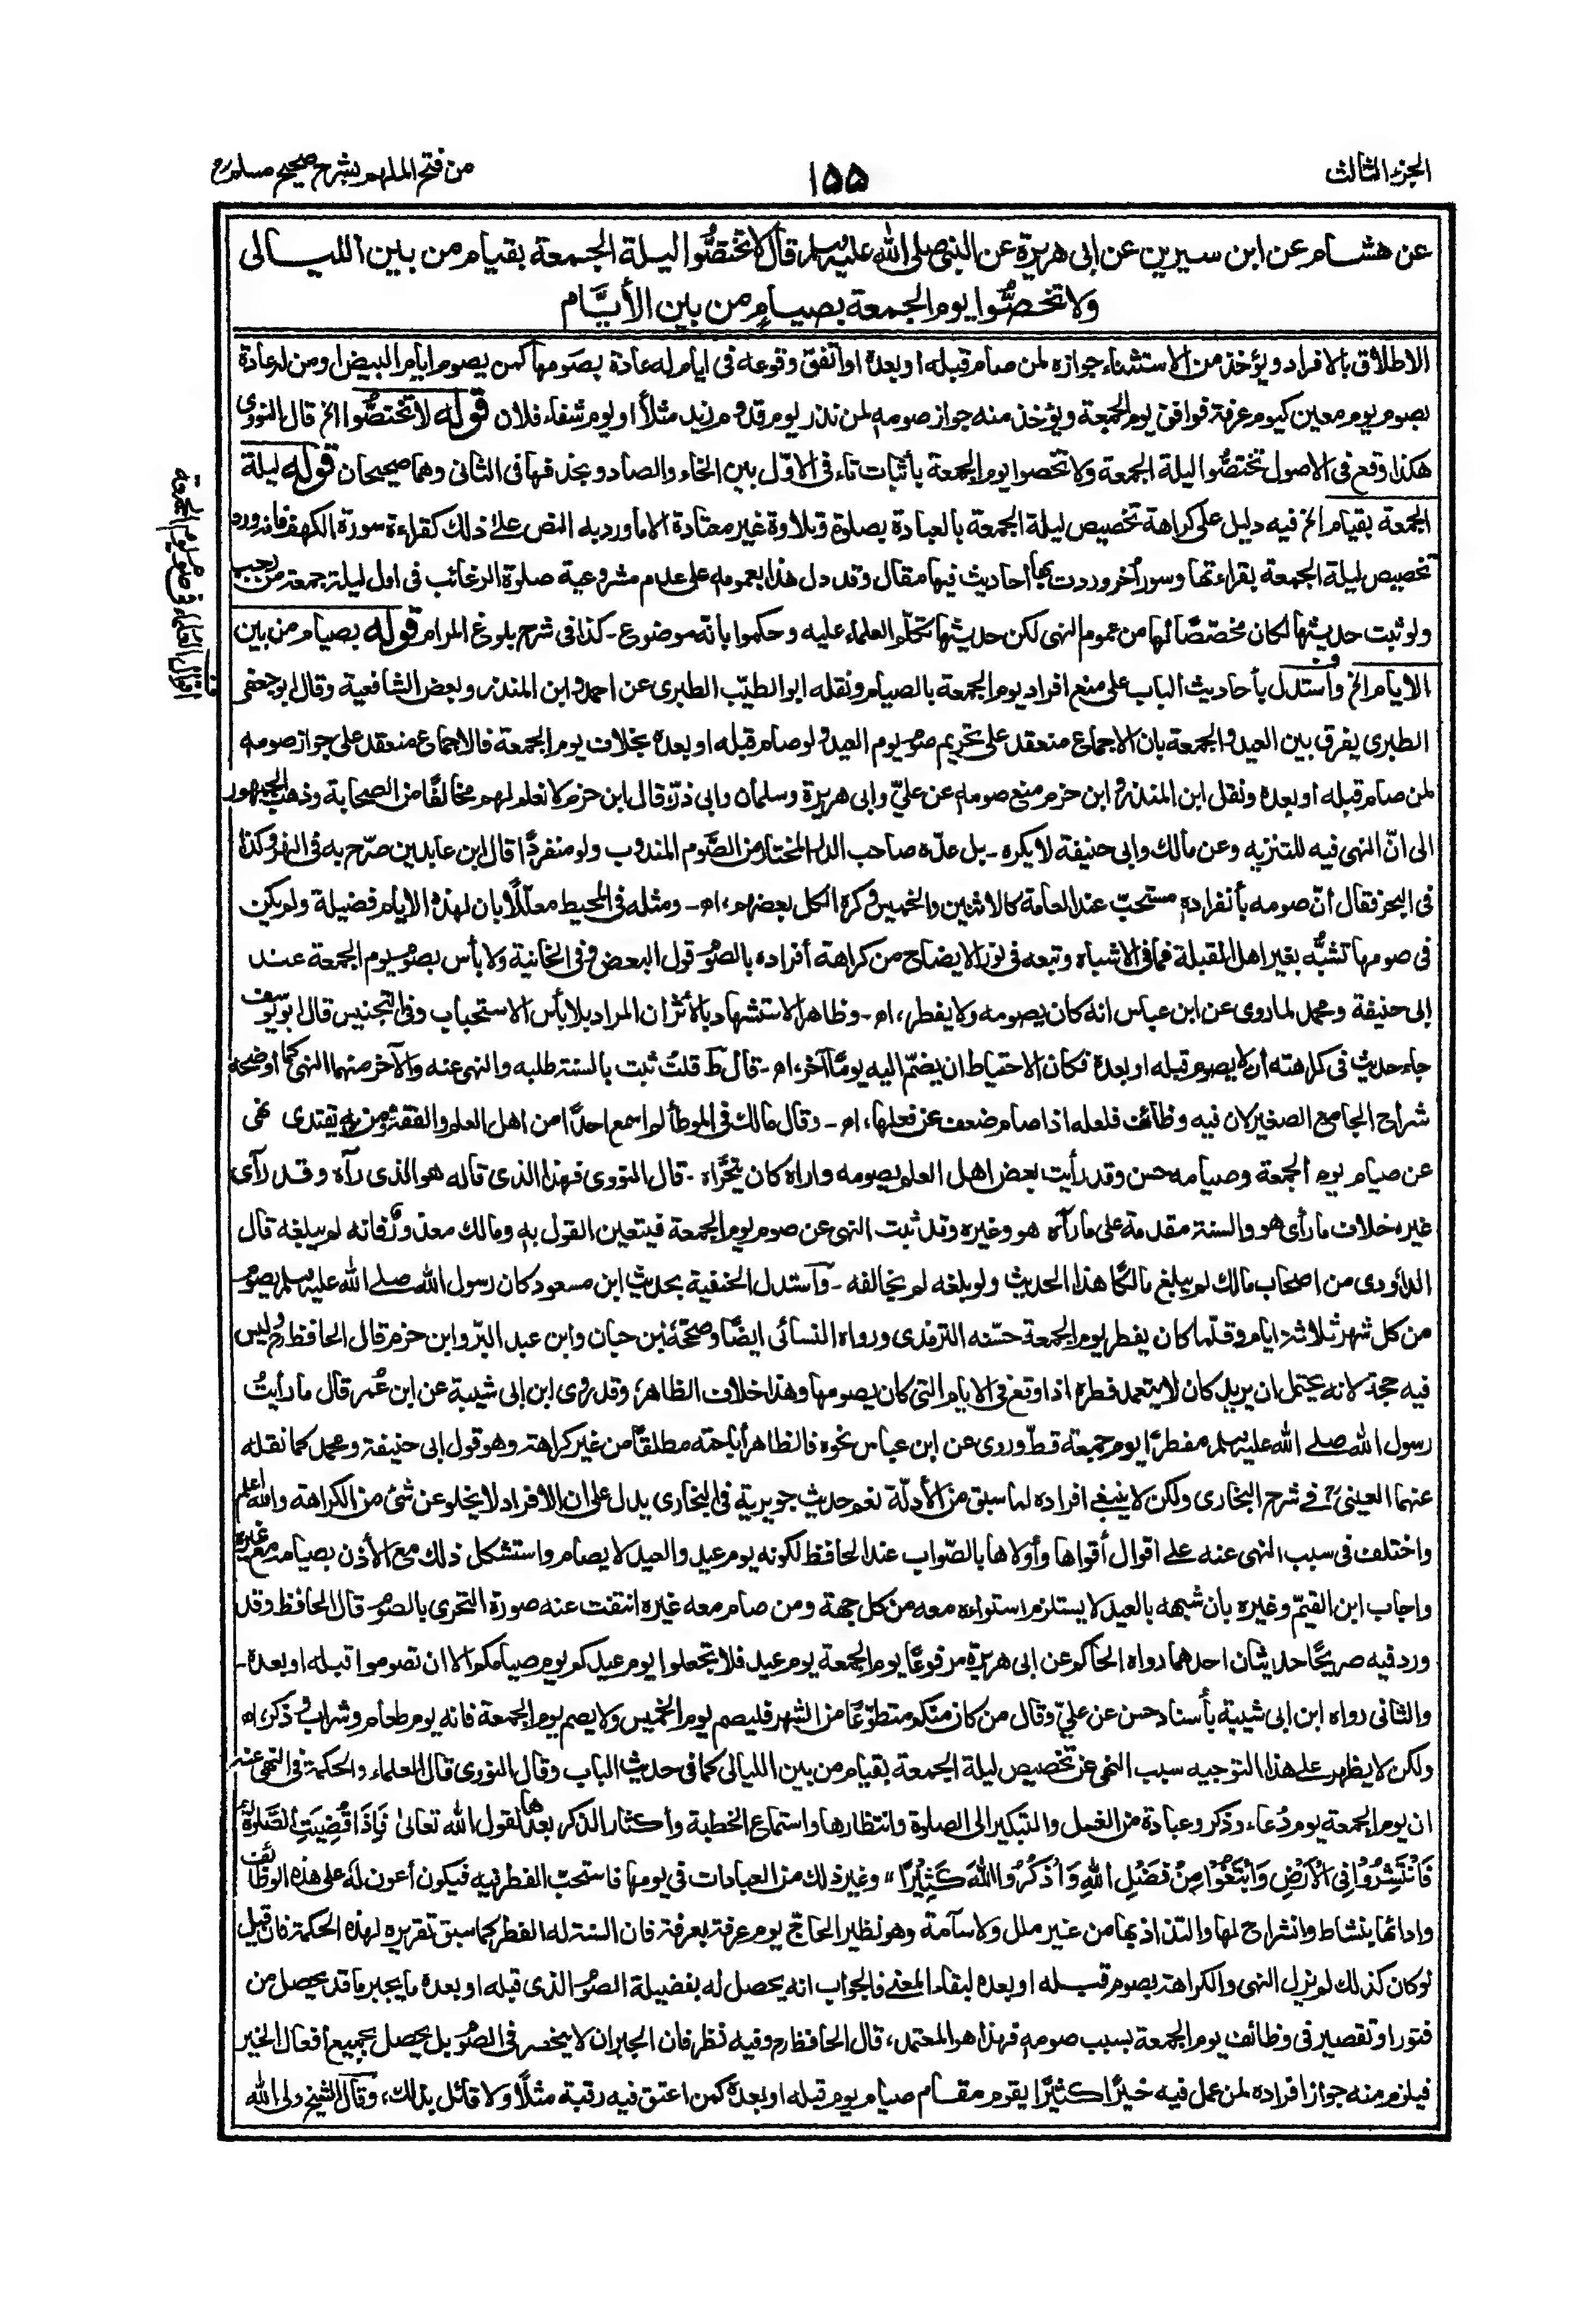 الجزء الثالث
١٥٥
من فتح الملهم بشرح صحيح مسلم
عن هشام عن ابن سيرين عن ابى هريرة عن النبى صلى الله عليه وسلم قال لا تختصوا ليلة الجمعة بقيام من بين الليالى
ولا تخصوا يوم الجمعة بصيام من بين الأيام
الاطلاق بالافراد ويؤخذ من الاستثناء جوازه لمن صام قبله او بعده او اتفق وقوعه فى ايام له عادة بصومها كمن يصوم ايام البيض او من له عادة
بصوم يوم معين كيوم عرفة فوافق يوم الجمعة ويؤخذ منه جواز صومه لمن نذر يوم قدوم زيد مثلاً او يوم شفاء فلان قوله لا تختصوا الخ قال النووى
هكذا وقع فى الاصول تختصوا ليلة الجمعة ولا تخصوا يوم الجمعة بأثبات تاء فى الاول بين الخاء والصاد وبحذفها فى الثانى وهما صحيحان قوله ليلة
الجمعة بقيام الخ فيه دليل على كراهة تخصيص ليلة الجمعة بالعبادة بصلوة وتلاوة غير معتادة الا ما ورد به النص على ذلك كقراءة سورة الكهف فانه ورد
تخصيص ليلة الجمعة بقراءتها وسور أخر وردت بها أحاديث فيها مقال وقد دل هذا بعمومه على عدم مشروعية صلوة الرغائب فى اول ليلة جمعة من رجب
ولو ثبت حديثها لكان مخصصاً لها من عموم النهى لكن حديثها تكلم العلماء عليه وحكموا بأنه موضوع - كذا فى شرح بلوغ المرام قوله بصيام من بين
الايام الخ واستدل بأحاديث الباب على منع افراد يوم الجمعة بالصيام ونقله ابو الطيب الطبرى عن احمد وابن المنذر وبعض الشافعية وقال ابو جعفر
الطبرى يفرق بين العيد والجمعة بان الاجماع منعقد على تحريم صوم يوم العيد ولو صام قبله او بعده بخلاف يوم الجمعة فالاجماع منعقد على جواز صومه
لمن صام قبله او بعده ونقل ابن المنذر وابن حزم منع صومه عن علي وابى هريرة وسلمان وابى ذر قال ابن حزم لا نعلم لهم مخالفا من الصحابة وذهب الجمهور
الى ان النهى فيه للتنزيه وعن مالك وابى حنيفة لا يكره - بل عده صاحب الدر المختار من الصوم المندوب ولو منفرداً قال ابن عابدين صرح به فى النهر وكذا
فى البحر فقال أن صومه بأنفراده مستحب عند العامة كالاثنين والخميس وكره الكل بعضهم، اھ - ومثله فى المحيط معللاً بان لهذه الايام فضيلة ولم يكن
فى صومها تشبه بغير اهل القبلة فما فى الاشباه وتبعه فى نور الايضاح من كراهة أفراده بالصوم قول البعض وفى الخانية ولا بأس بصوم يوم الجمعة عند
ابى حنيفة ومحمد لما روى عن ابن عباس انه كان يصومه ولا يفطر، اھ - وظاهر الاستشهاد بالأثر ان المراد بلا بأس الاستحباب وفى التجنيس قال ابو يوسف
جاء حديث فى كراهته ألا يصوم قبله او بعده فكان الاحتياط ان يضم اليه يوماً آخر، اھ - قال ط قلت ثبت بالسنة طلبه والنهى عنه والآخر منهما النهى كما أوضحه
شراح الجامع الصغير لان فيه وظائف فلعله اذا صام ضعف عن فعلها، اھ - وقال مالك فى الموطأ لم اسمع احداً من اهل العلم والفقه ومن به يقتدى نهى
عن صيام يوم الجمعة وصيامه حسن وقد رأيت بعض اهل العلم يصومه واراه كان يتحراه - قال النووى فهذا الذى قاله هو الذى رآه وقد رآى
غيره خلاف ما رأى هو والسنة مقدمة على ما رآه هو وغيره وقد ثبت النهى عن صوم يوم الجمعة فيتعين القول به ومالك معذور فانه لم يبلغه قال
الداؤدى من اصحاب مالك لم يبلغ مالكا هذا الحديث ولو بلغه لم يخالفه - واستدل الحنفية بحديث ابن مسعود كان رسول الله صلے الله عليه وسلم يصوم
من كل شهر ثلاثة ايام وقلما كان يفطر يوم الجمعة حسنه الترمذى ورواه النسائى ايضاً وصححه ابن حبان وابن عبد البر وابن حزم قال الحافظ وليس
فيه حجة لانه يحتمل ان يريد كان لا يتعمد فطره اذا وقع فى الايام التى كان يصومها وهذا خلاف الظاهر، وقد روى ابن ابى شيبة عن ابن عمر قال ما رأيت
رسول الله صلے الله عليه وسلم مفطراً يوم جمعة قط وروى عن ابن عباس نحوه فالظاهر أباحته مطلقاً من غير كراهة وهو قول ابى حنيفة ومحمد كما نقله
عنهما العينى فى شرح البخارى ولكن لا ينبغى افراده لما سبق من الأدلة نعم حديث جويرية فى البخارى يدل على ان الافراد لا يخلو عن شئ من الكراهة والله اعلم
واختلف فى سبب النهى عنه على اقوال أقواها وأولاها بالصواب عند الحافظ لكونه يوم عيد والعيد لا يصام واستشكل ذلك مع الأذن بصيامه مع غيره
واجاب ابن القيم وغيره بان شبهه بالعيد لا يستلزم استواءه معه من كل جهة ومن صام معه غيره انتفت عنه صورة التحرى بالصوم قال الحافظ وقد
ورد فيه صريحاً حديثان احدهما رواه الحاكم عن ابى هريرة مرفوعاً يوم الجمعة يوم عيد فلا تجعلوا يوم عيدكم يوم صيامكم الا ان تصوموا قبله او بعده -
والثانى رواه ابن ابى شيبة بأسناد حسن عن على وقال من كان منكم متطوعاً من الشهر فليصم يوم الخميس ولا يصم يوم الجمعة فانه يوم طعام وشراب وذكر، اھ
ولكن لا يظهر على هذا التوجيه سبب النهى عن تخصيص ليلة الجمعة بقيام من بين الليالى كما فى حديث الباب وقال النووى قال العلماء والحكمة فى النهى عنه
ان يوم الجمعة يوم دعاء وذكر وعبادة من الغسل والتبكير الى الصلوة وانتظارها واستماع الخطبة وأكثار الذكر بعدها لقول الله تعالى فَإِذَا قُضِيَتِ الصَّلٰوةُ
فَانْتَشِرُوْا فِى الْأَرْضِ وَابْتَغُوْا مِنْ فَضْلِ اللهِ وَاذْكُرُوا اللهَ كَثِيْرًا، وغير ذلك من العبادات فى يومها فاستحب الفطر فيه فيكون أعون له على هذه الوظائف
وادائها بنشاط وانشراح لها والتذاذ بها من غير ملل ولا سآمة وهو نظير الحاج يوم عرفة بعرفة فان السنة له الفطر كما سبق تقريره لهذه الحكمة فان قيل
لو كان كذلك لم يزل النهى والكراهة بصوم قبله او بعده لبقاء المعنى فالجواب انه يحصل له بفضيلة الصوم الذى قبله او بعده ما يجبر ما قد يحصل من
فتور او تقصير فى وظائف يوم الجمعة بسبب صومه فهذا هو المعتمد، قال الحافظ وفيه نظر فان الجبران لا ينحصر فى الصوم بل يحصل بجميع أفعال الخير
فيلزم منه جواز افراده لمن عمل فيه خيراً كثيراً يقوم مقام صيام يوم قبله او بعده كمن اعتق فيه رقبة مثلاً ولا قائل بذلك، وقال الشيخ ولى الله
اقوال العلماء فى صوم يوم الجمعة